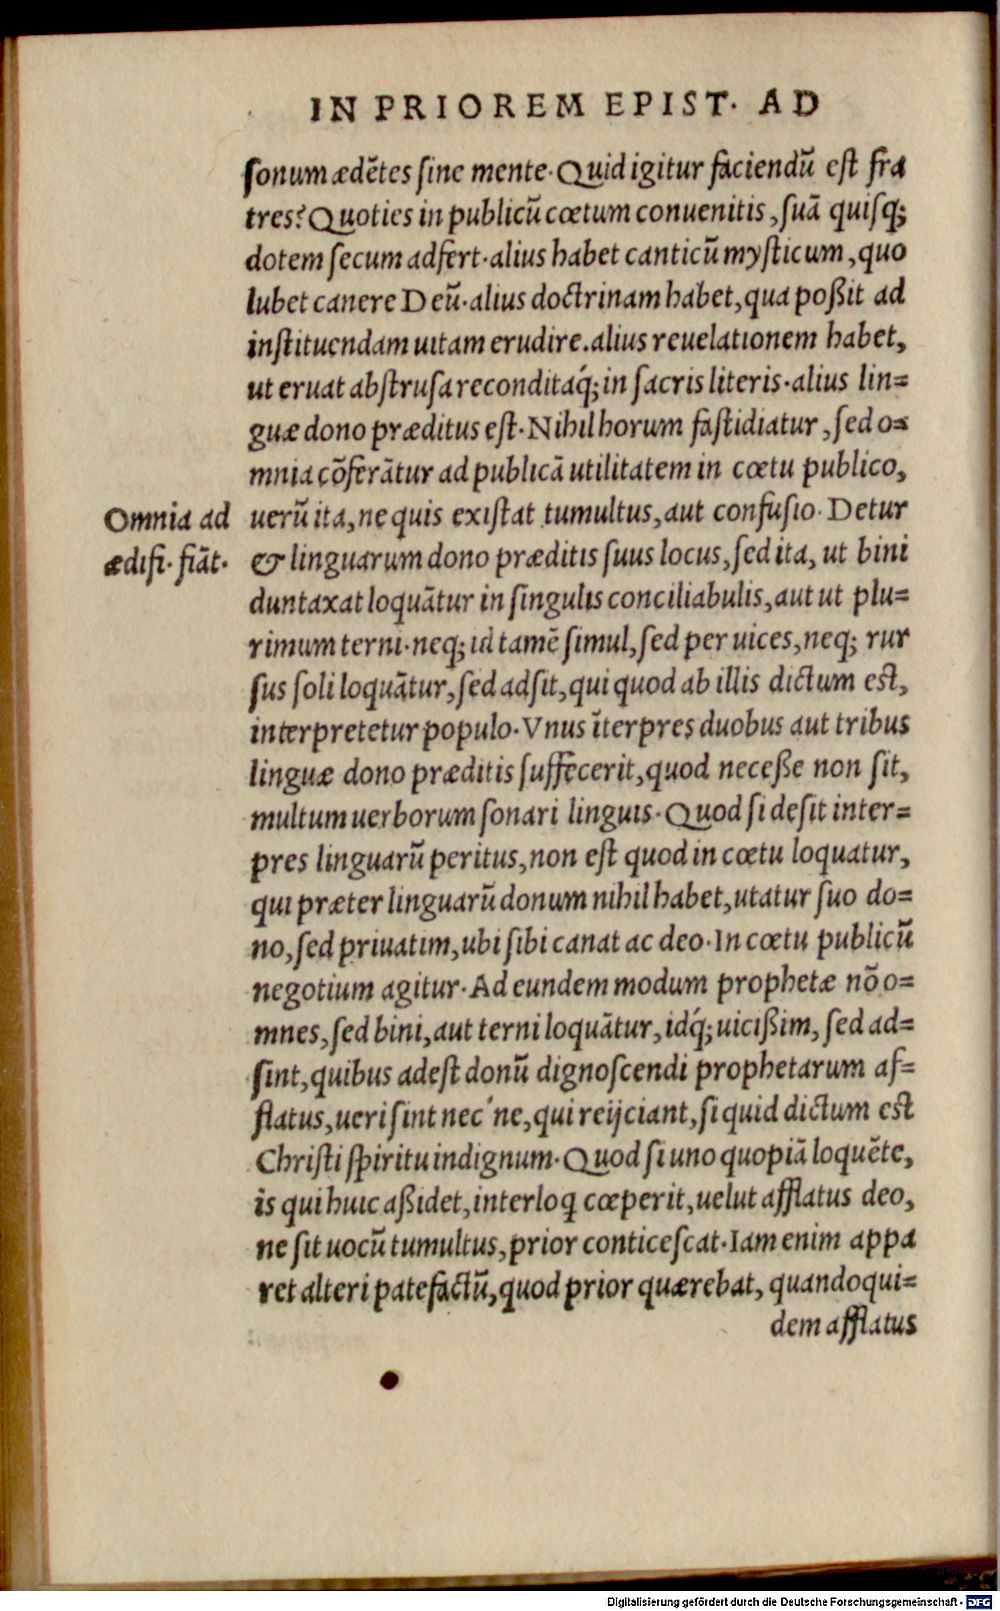 IN PRIOREM EPIST. AD
sonum ædētes sine mente. Quid igitur faciendū est fra
tres? Quoties in publicū cœtum conuenitis, suā quisq;
dotem secum adfert. alius habet canticū mysticum, quo
lubet canere Deū. alius doctrinam habet, qua poßit ad
instituendam uitam erudire. alius reuelationem habet,
ut eruat abstrusa reconditaq́; in sacris literis. alius lin=
guæ dono præditus est. Nihil horum fastidiatur, sed o=
mnia cōferātur ad publicā utilitatem in cœtu publico,
Omnia ad
ædifi. fiāt.
uerū ita, ne quis existat tumultus, aut confusio. Detur
& linguarum dono præditis suus locus, sed ita, ut bini
duntaxat loquātur in singulis conciliabulis, aut ut plu=
rimum terni. neq; id tamē simul, sed per uices, neq; rur
sus soli loquātur, sed adsit, qui quod ab illis dictum est,
interpretetur populo. Vnus īterpres duobus aut tribus
linguæ dono præditis suffecerit, quod neceße non sit,
multum uerborum sonari linguis. Quod si desit inter=
pres linguarū peritus, non est quod in cœtu loquatur,
qui præter linguarū donum nihil habet, utatur suo do=
no, sed priuatim, ubi sibi canat ac deo. In cœtu publicū
negotium agitur. Ad eundem modum prophetæ nō o=
mnes, sed bini, aut terni loquātur, idq́; uicißim, sed ad=
sint, quibus adest donū dignoscendi prophetarum af=
flatus, ueri sint nec'ne, qui reijciant, si quid dictum est
Christi spiritu indignum. Quod si uno quopiā loquēte,
is qui huic aßidet, interloq cœperit, uelut afflatus deo,
ne sit uocū tumultus, prior conticescat. Iam enim appa
ret alteri patefactū, quod prior quærebat, quandoqui=
dem afflatus
Digitalisierung gefördert durch die Deutsche Forschungsgemeinschaft - DFG